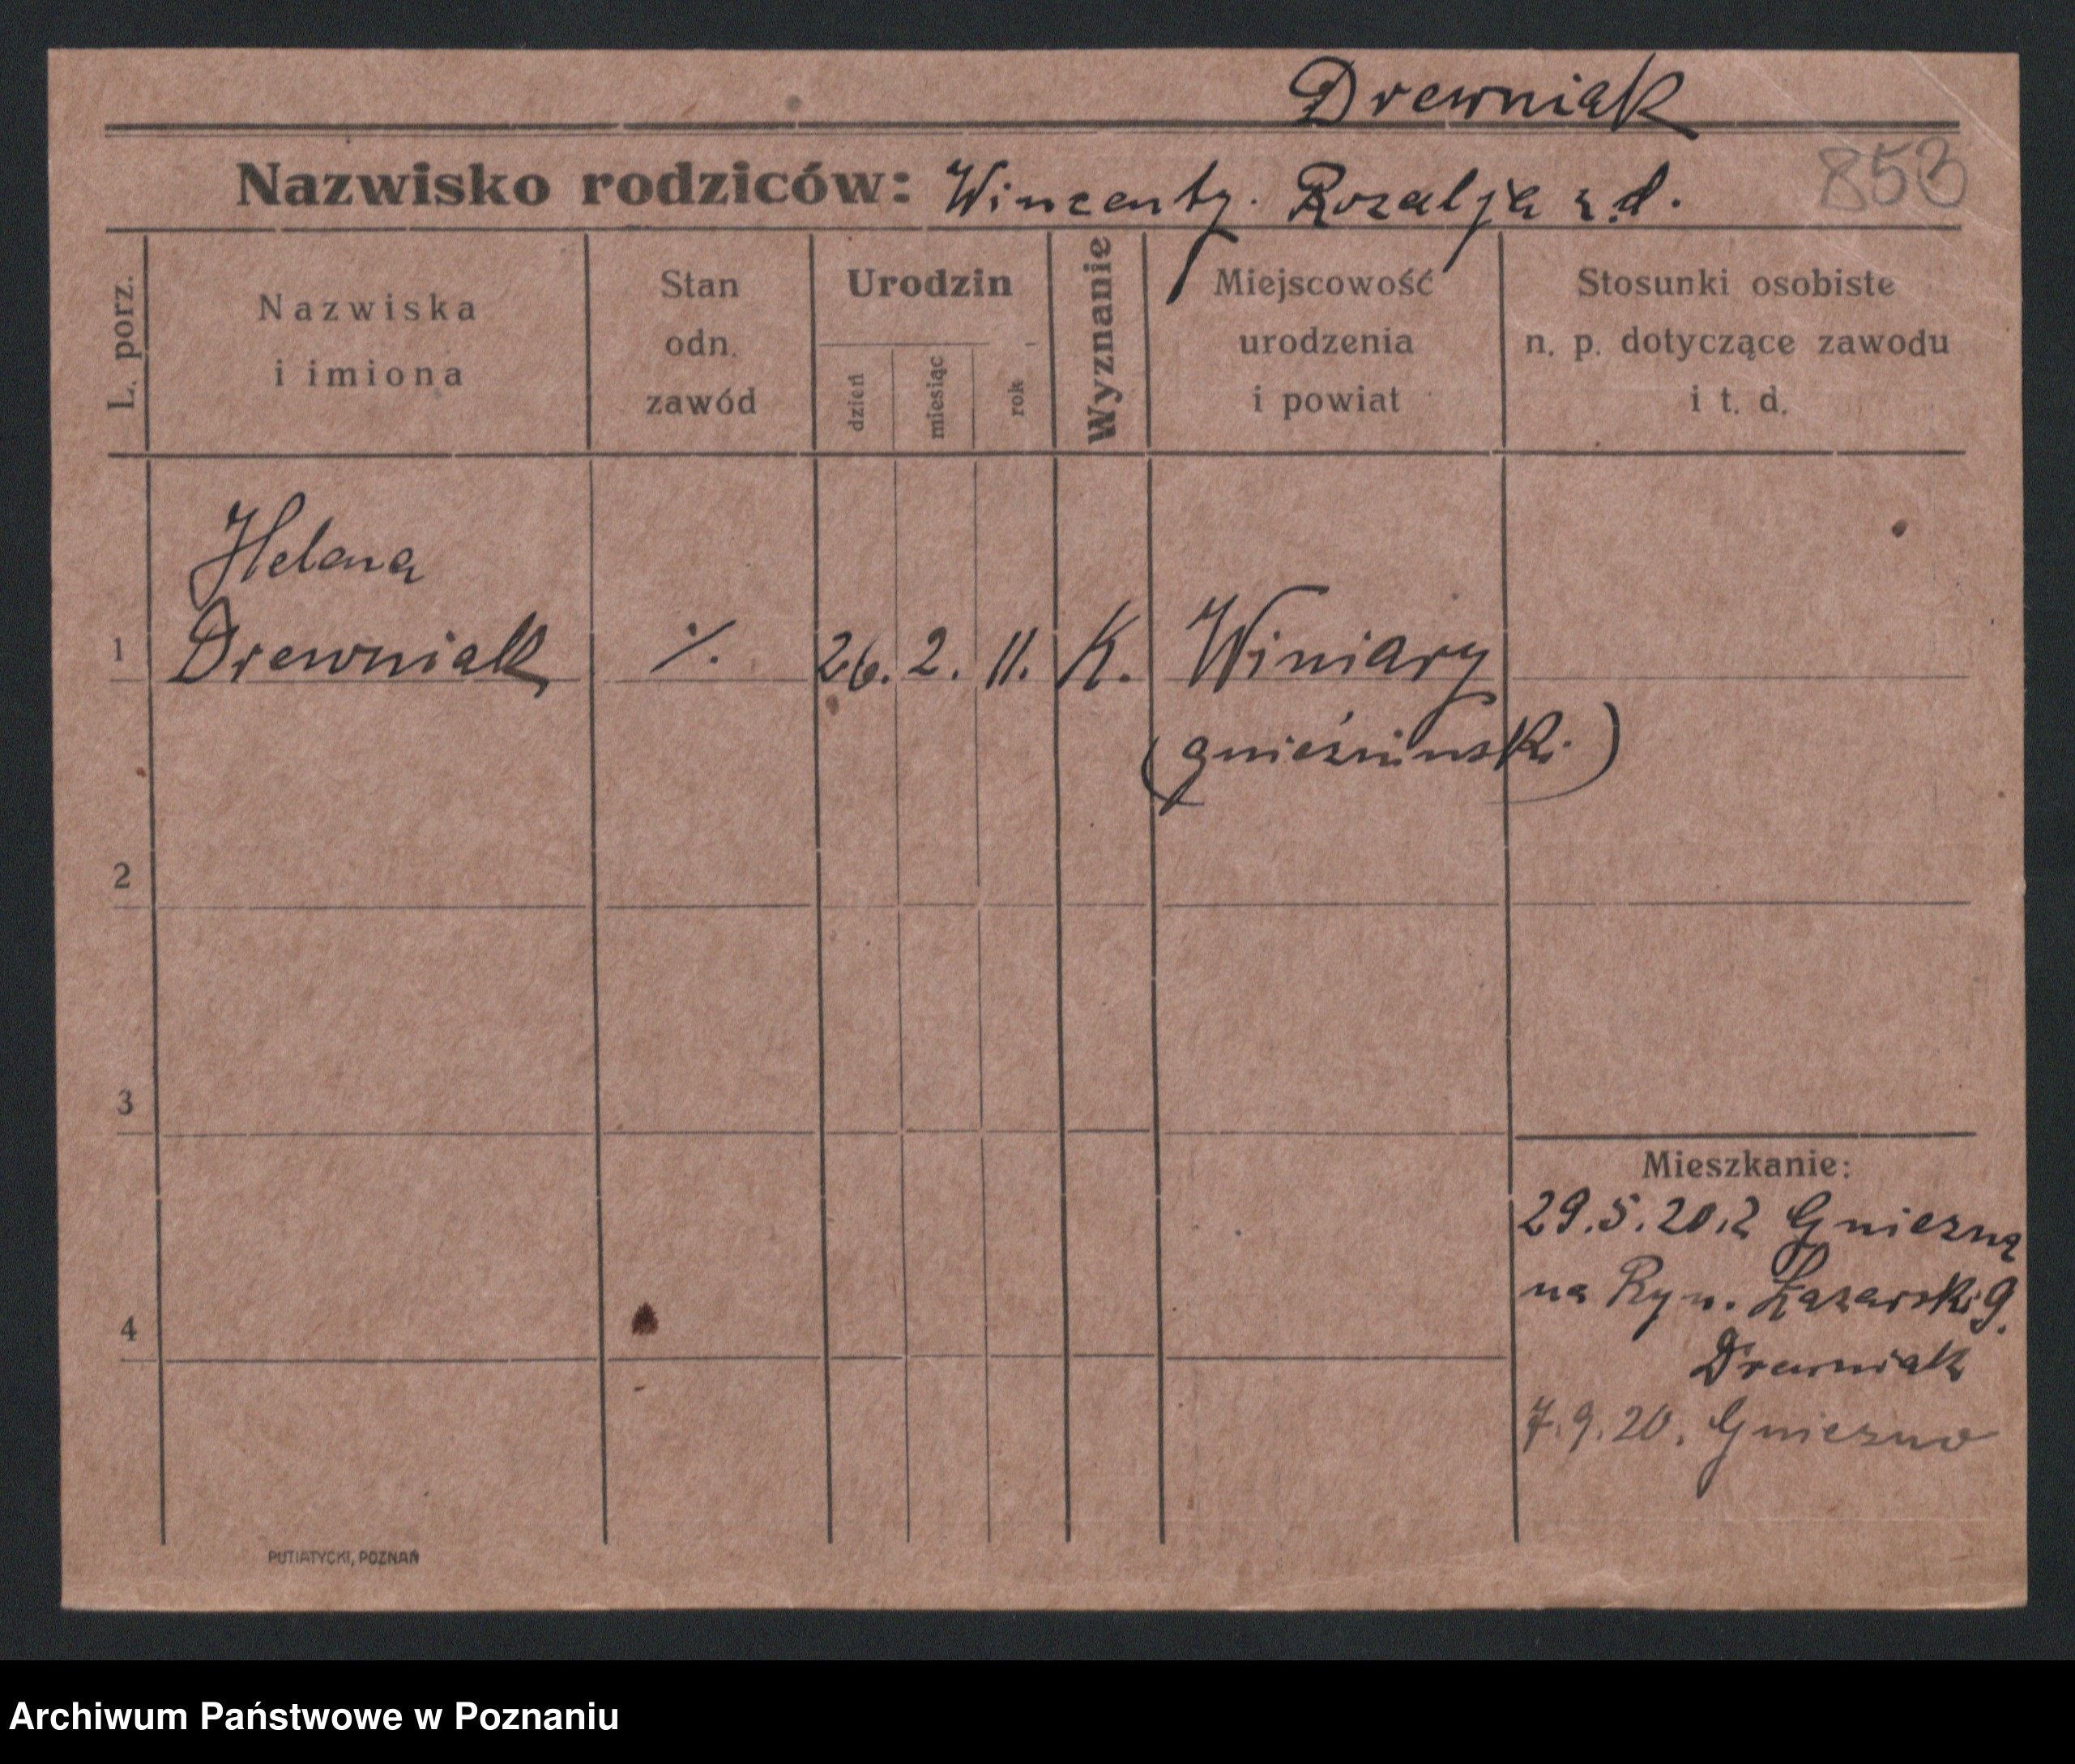 Drewniak
Nazwisko rodziców: Wincenty. Rozalja z. d.
853
L. porz.
Nazwiska
i imiona
Stan
odn.
zawód
Urodzin
dzień
miesiąc
rok
Wyznanie
Miejscowość
urodzenia
i powiat
Stosunki osobiste
n. p. dotyczące zawodu
i t. d.
Helena
1 Drewniak ./. 26. 2. 11. K. Winiary
(gnieźnieński)
2
3
4
Mieszkanie:
29.5.20. z Gniezna
na Ryn. Łazarski 9.
Drewniak
7.9.20. Gniezno
PUTIATYCKI, POZNAŃ
Archiwum Państwowe w Poznaniu